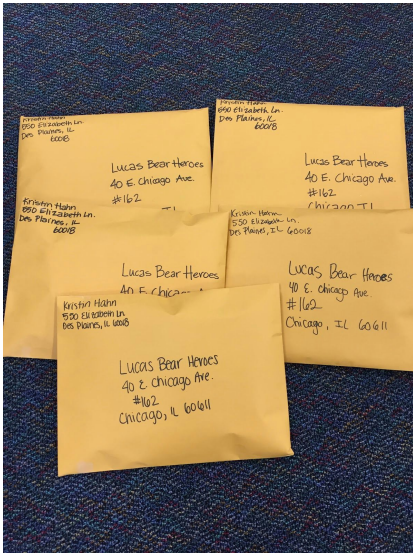 Kristin Hahn
550 Elizabeth Ln.
Des Plaines, IL
60018
Lucas Bear Heroes
40 E. Chicago Ave.
#162
Kristin Hahn
550 Elizabeth Ln.
Des Plaines, IL
60018
Lucas Bear Heroes
40 E. Chicago Ave.
#162
Chicago IL
Kristin Hahn
550 Elizabeth Ln.
Des Plaines, IL
60018
Lucas Bear Heroes
40 E. Chicago Ave.
Kristin Hahn
550 Elizabeth Ln.
Des Plaines, IL 60018
Lucas Bear Heroes
40 E. Chicago Ave.
#162
Chicago, IL 60611
Kristin Hahn
550 Elizabeth Ln.
Des Plaines, IL 60018
Lucas Bear Heroes
40 E. Chicago Ave.
#162
Chicago, IL 60611